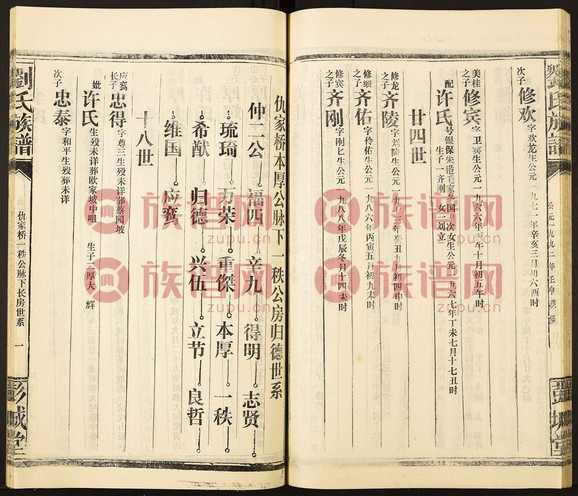 次子 修欢 字欢龙生公元一九七一年辛亥三月初六酉时
美桂之子 修宾 字卫宾生公元一九六六年丙午十月初五午时
配 许氏
生子一齐刚 女一刘立
廿四世
修龙之子 齐陵
修瑞之子 齐佑 字伶佑生公元一九八六年丙寅五月初九未时
修宾之子 齐刚 字刚匕生公元一九八八年戊辰冬月十四未时
彭城堂
劉氏族譜
仇家桥本厚公脉下一秩公房归德世系
仲二公 福四 辛九 得明 志贤
琉琦 万荣 重傑 本厚 一秩
希猷 归德 兴伍 立节 良哲
维国 应鸾
十八世
应鸾长子 忠得 字尊三生殁未详葬蔡园坡
妣 许氏 生殁未详葬欧家坡中咀 生子二厚大 辉
次子 忠泰 字和平生殁葬未详
劉氏族譜
仇家桥一秩公脉下长房世系 一
彭城堂
族谱网
zupu.cn
族谱网
zupu.cn
族谱网
zupu.cn
族谱网
zupu.cn